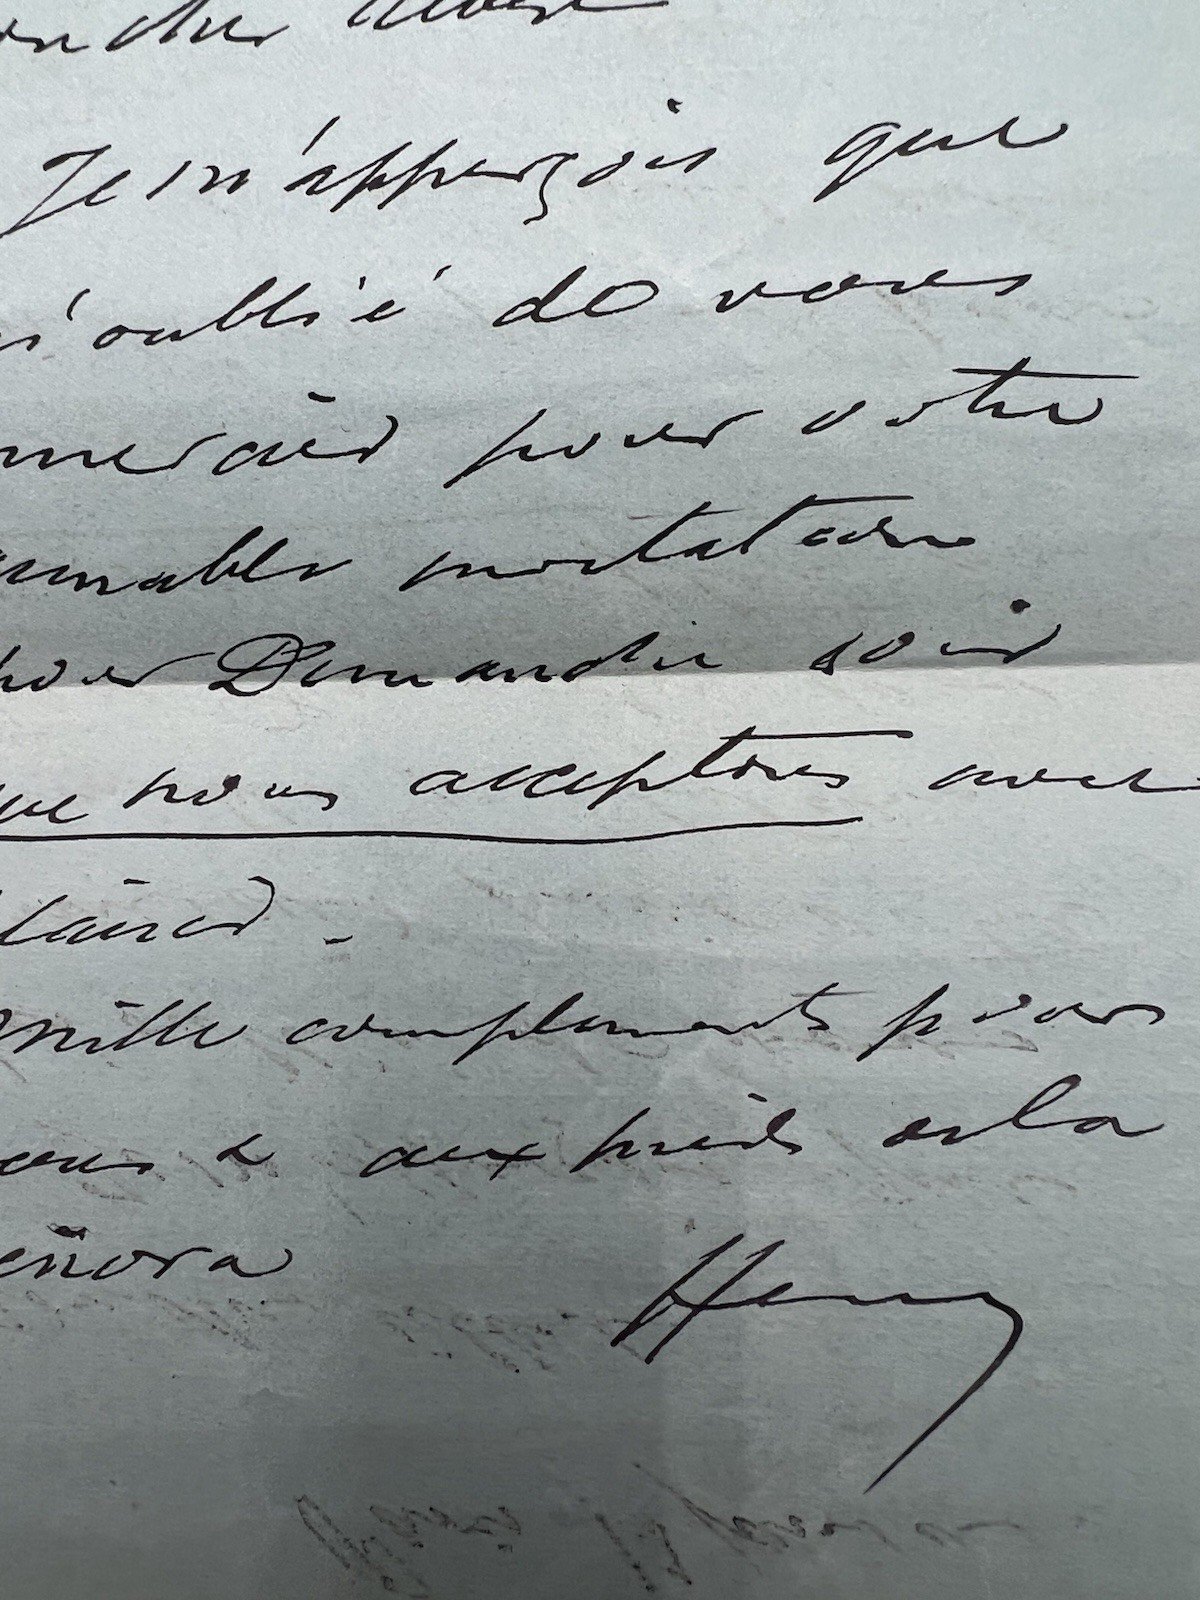 on cher Albert
Je m'apperçois que
i oublié de vous
mercier pour votre
imable invitation
pour Dimanche soir
que nous acceptons avec
laisir.
Mille compliments pour
vous & aux pieds de la
eñora
Henry